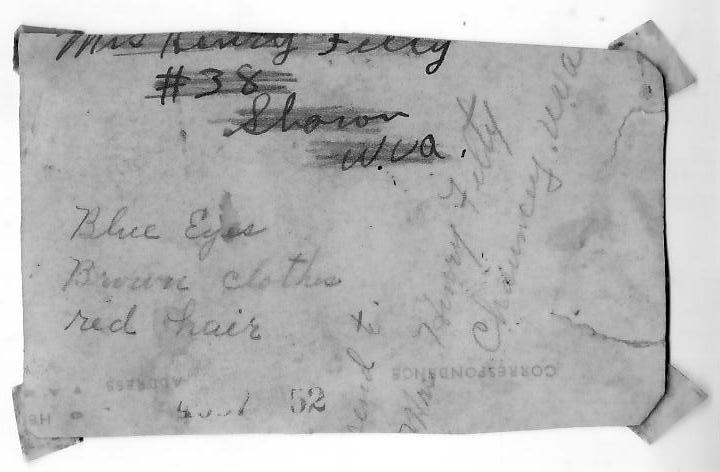 Mrs Henry Felty
#38
Sharon
W.Va.
Blue Eyes
Brown clothes
red hair
send to
Mrs Henry Felty
Chauncey. W.va
CORRESPONDENCE
ADDRESS
52